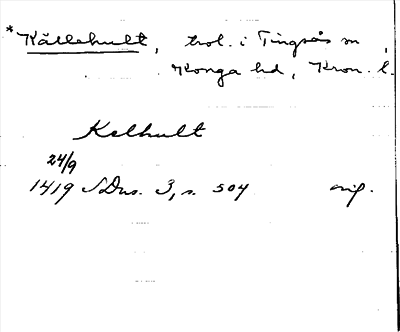 *Källehult, trol. i Tingsås sn,
Konga hd, Kron. l.
Kelhult
24/9
1419 SDns. 3, s. 504 orig.